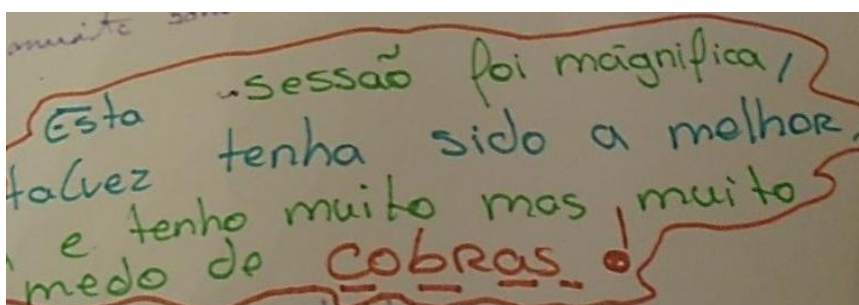 Esta sessão foi mágnifica,
talvez tenha sido a melhor,
e tenho muito mas muito
medo de cobras!